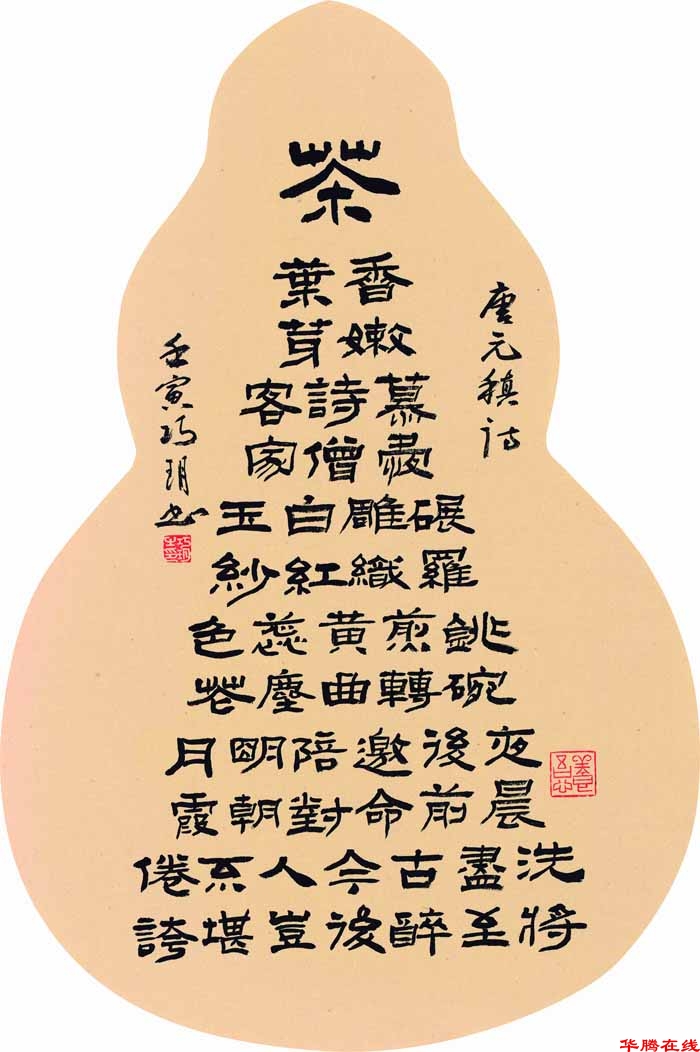 茶
香葉
嫩芽
慕詩客
愛僧家
碾雕白玉
羅織紅紗
銚煎黃蕊色
碗轉曲塵花
夜後邀陪明月
晨前命對朝霞
洗盡古今人不倦
將至醉後豈堪誇
唐元稹诗
壬寅巧玥书
华腾在线